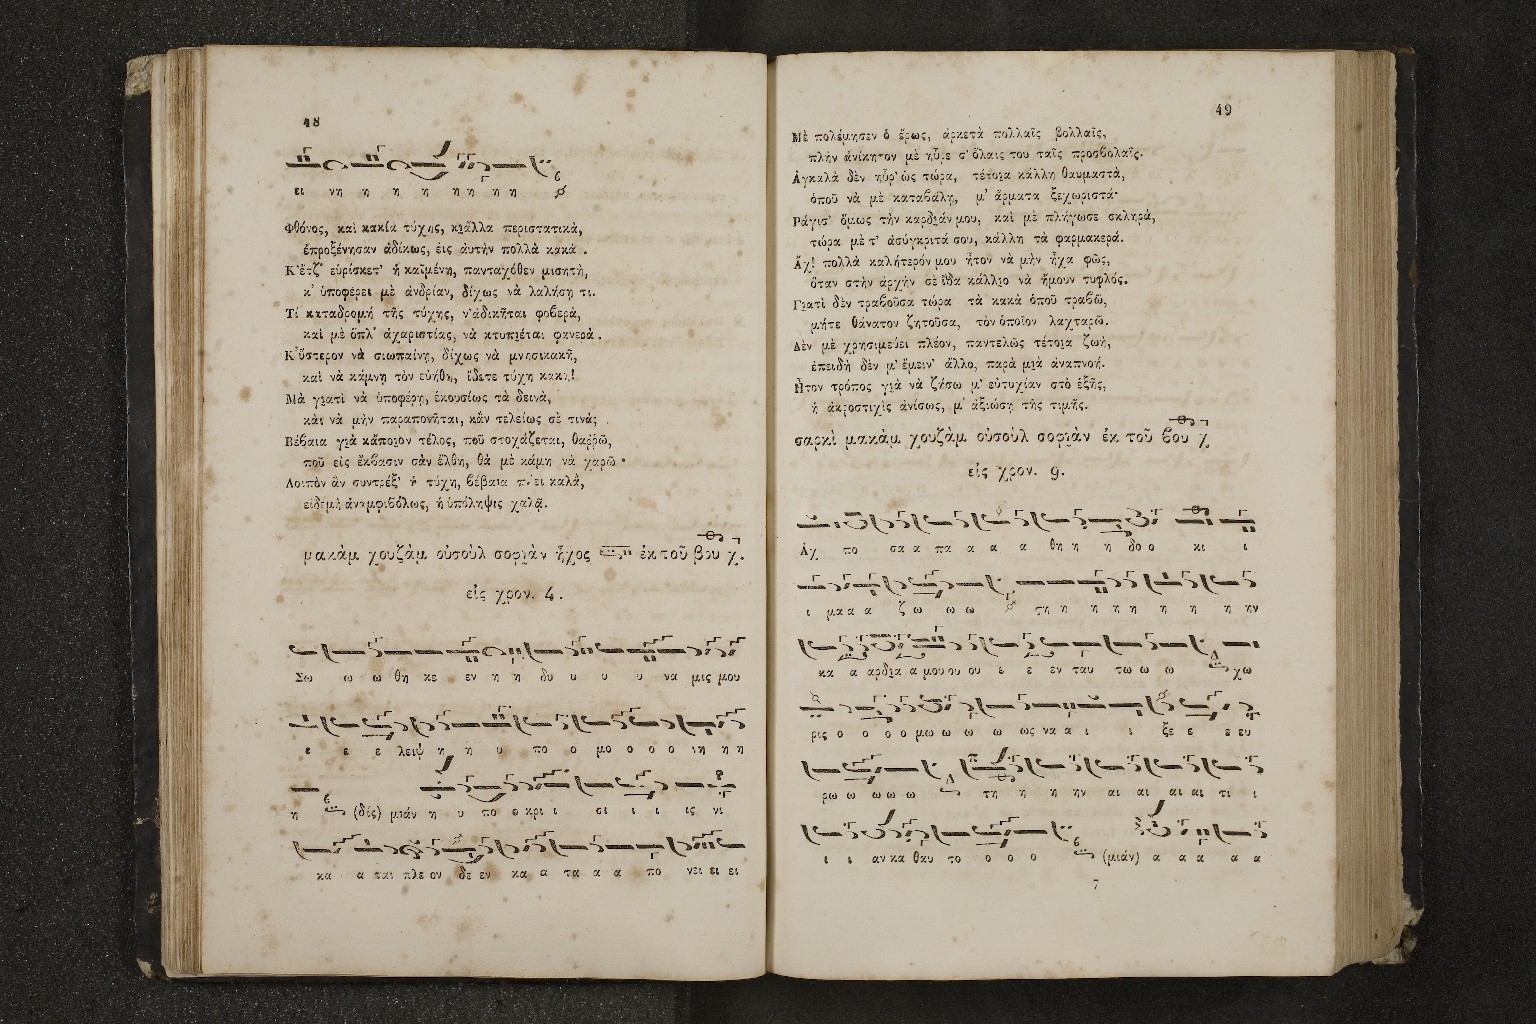 48
ει νη η η η η η η η
Φθόνος, καὶ κακία τύχης, κιἄλλα περιστατικὰ,
ἐπροξένησαν ἀδίκως, εἰς αὐτὴν πολλὰ κακὰ.
Κ'ἔτζ' εὑρίσκετ' ἡ καϊμένη, πανταχόθεν μισητὴ,
κ' ὑποφέρει μὲ ἀνδρίαν, δίχως νὰ λαλήσῃ τι.
Τί καταδρομὴ τῆς τύχης, ν'ἀδικῆται φοβερὰ,
καὶ μὲ ὅπλ' ἀχαριστίας, νὰ κτυπιέται φανερὰ.
Κ'ὕστερον νὰ σιωπαίνῃ, δίχως νὰ μνησικακῇ,
καὶ νὰ κάμνῃ τὸν εὐήθη, ἴδετε τύχη κακὴ!
Μὰ γιατὶ νὰ ὑποφέρῃ, ἑκουσίως τὰ δεινὰ,
καὶ νὰ μὴν παραπονῆται, κἂν τελείως σὲ τινὰ;
Βέβαια γιὰ κᾄποιον τέλος, ποῦ στοχάζεται, θαῤῥῶ,
ποῦ εἰς ἔκβασιν σὰν ἔλθῃ, θὰ μὲ κάμῃ νὰ χαρῶ·
Λοιπὸν ἂν συντρέξ' ἡ τύχη, βέβαια πάει καλὰ,
εἰδεμὴ ἀναμφιβόλως, ἡ ὑπόληψις χαλᾷ.
μακὰμ χουζὰμ οὐσοὺλ σοφιὰν ἦχος ἐκ τοῦ βου χ.
εἰς χρον. 4.
Σω ω ω θη κε εν η η δυ υ υ υ να μις μου
ε ε ε λειψ η η υ πο ο μο ο ο ο νη η η
η (δὶς) μιάν η υ πο ο κρι ι σι ι ι ις νι
κα α ται πλε ον δε εν κα α τα α α πο νει ει ει
49
Μὲ πολέμησεν ὁ ἔρως, ἀρκετὰ πολλαῖς βολλαῖς,
πλὴν ἀνίκητον μὲ ηὗρε σ' ὅλαις του ταῖς προσβολαῖς.
Ἀγκαλὰ δὲν ηὗρ' ὡς τώρα, τέτοια κάλλη θαυμαστὰ,
ὁποῦ νὰ μὲ καταβάλῃ, μ' ἄρματα ξεχωριστὰ·
Ράγισ' ὅμως τὴν καρδιάν μου, καὶ μὲ πλήγωσε σκληρὰ,
τώρα μὲ τ' ἀσύγκριτά σου, κάλλη τὰ φαρμακερά.
Ἄχ! πολλὰ καλήτερόν μου ἦτον νὰ μὴν ἦχα φῶς,
ὅταν στὴν ἀρχὴν σὲ ἶδα κάλλιο νὰ ἤμουν τυφλός.
Γιατὶ δὲν τραβοῦσα τώρα τὰ κακὰ ὁποῦ τραβῶ,
μήτε θάνατον ζητοῦσα, τὸν ὁποῖον λαχταρῶ.
Δὲν μὲ χρησιμεύει πλέον, παντελῶς τέτοια ζωὴ,
ἐπειδὴ δὲν μ' ἔμειν' ἄλλο, παρὰ μιὰ ἀναπνοή.
Ἦτον τρόπος γιὰ νὰ ζήσω μ' εὐτυχίαν στὸ ἑξῆς,
ἡ ἀκροστιχὶς ἀνίσως, μ' ἀξιώσῃ τῆς τιμῆς.
σαρκὶ μακὰμ χουζὰμ οὐσοὺλ σοφιὰν ἐκ τοῦ βου χ
εἰς χρον. 9.
Ἀχ πο σα α πα α α α θη η η δο ο κι ι
ι μα α α ζω ω ω τη η η η η η η η ην
κα α αρδια α μου ου ου ε ε εν ταυ τω ω ω χω
ρις ο ο ο ο μω ω ω ω ως να α ι ι ξε ε ε ευ
ρω ω ω ω ω τη η η ην αι αι αι αι τι ι
ι ι αν κα θαυ το ο ο ο (μιάν) α α α α α
7